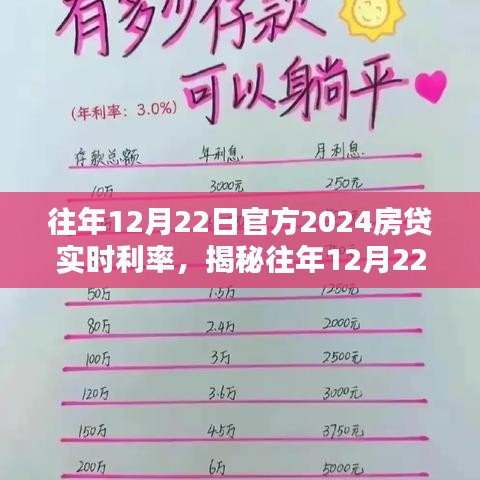 有多少存款
可以躺平
(年利率：3.0%)
存款总额 年利息 月利息
10万 3000元 250元
往年12月22日官方2024房贷
实时利率，揭秘往年12月22
50万 1.5万 1250元
80万 2.4万 2000元
100万 3万 2500元
120万 3.6万 3000元
150万 4.5万 3750元
200万 6万 5000元